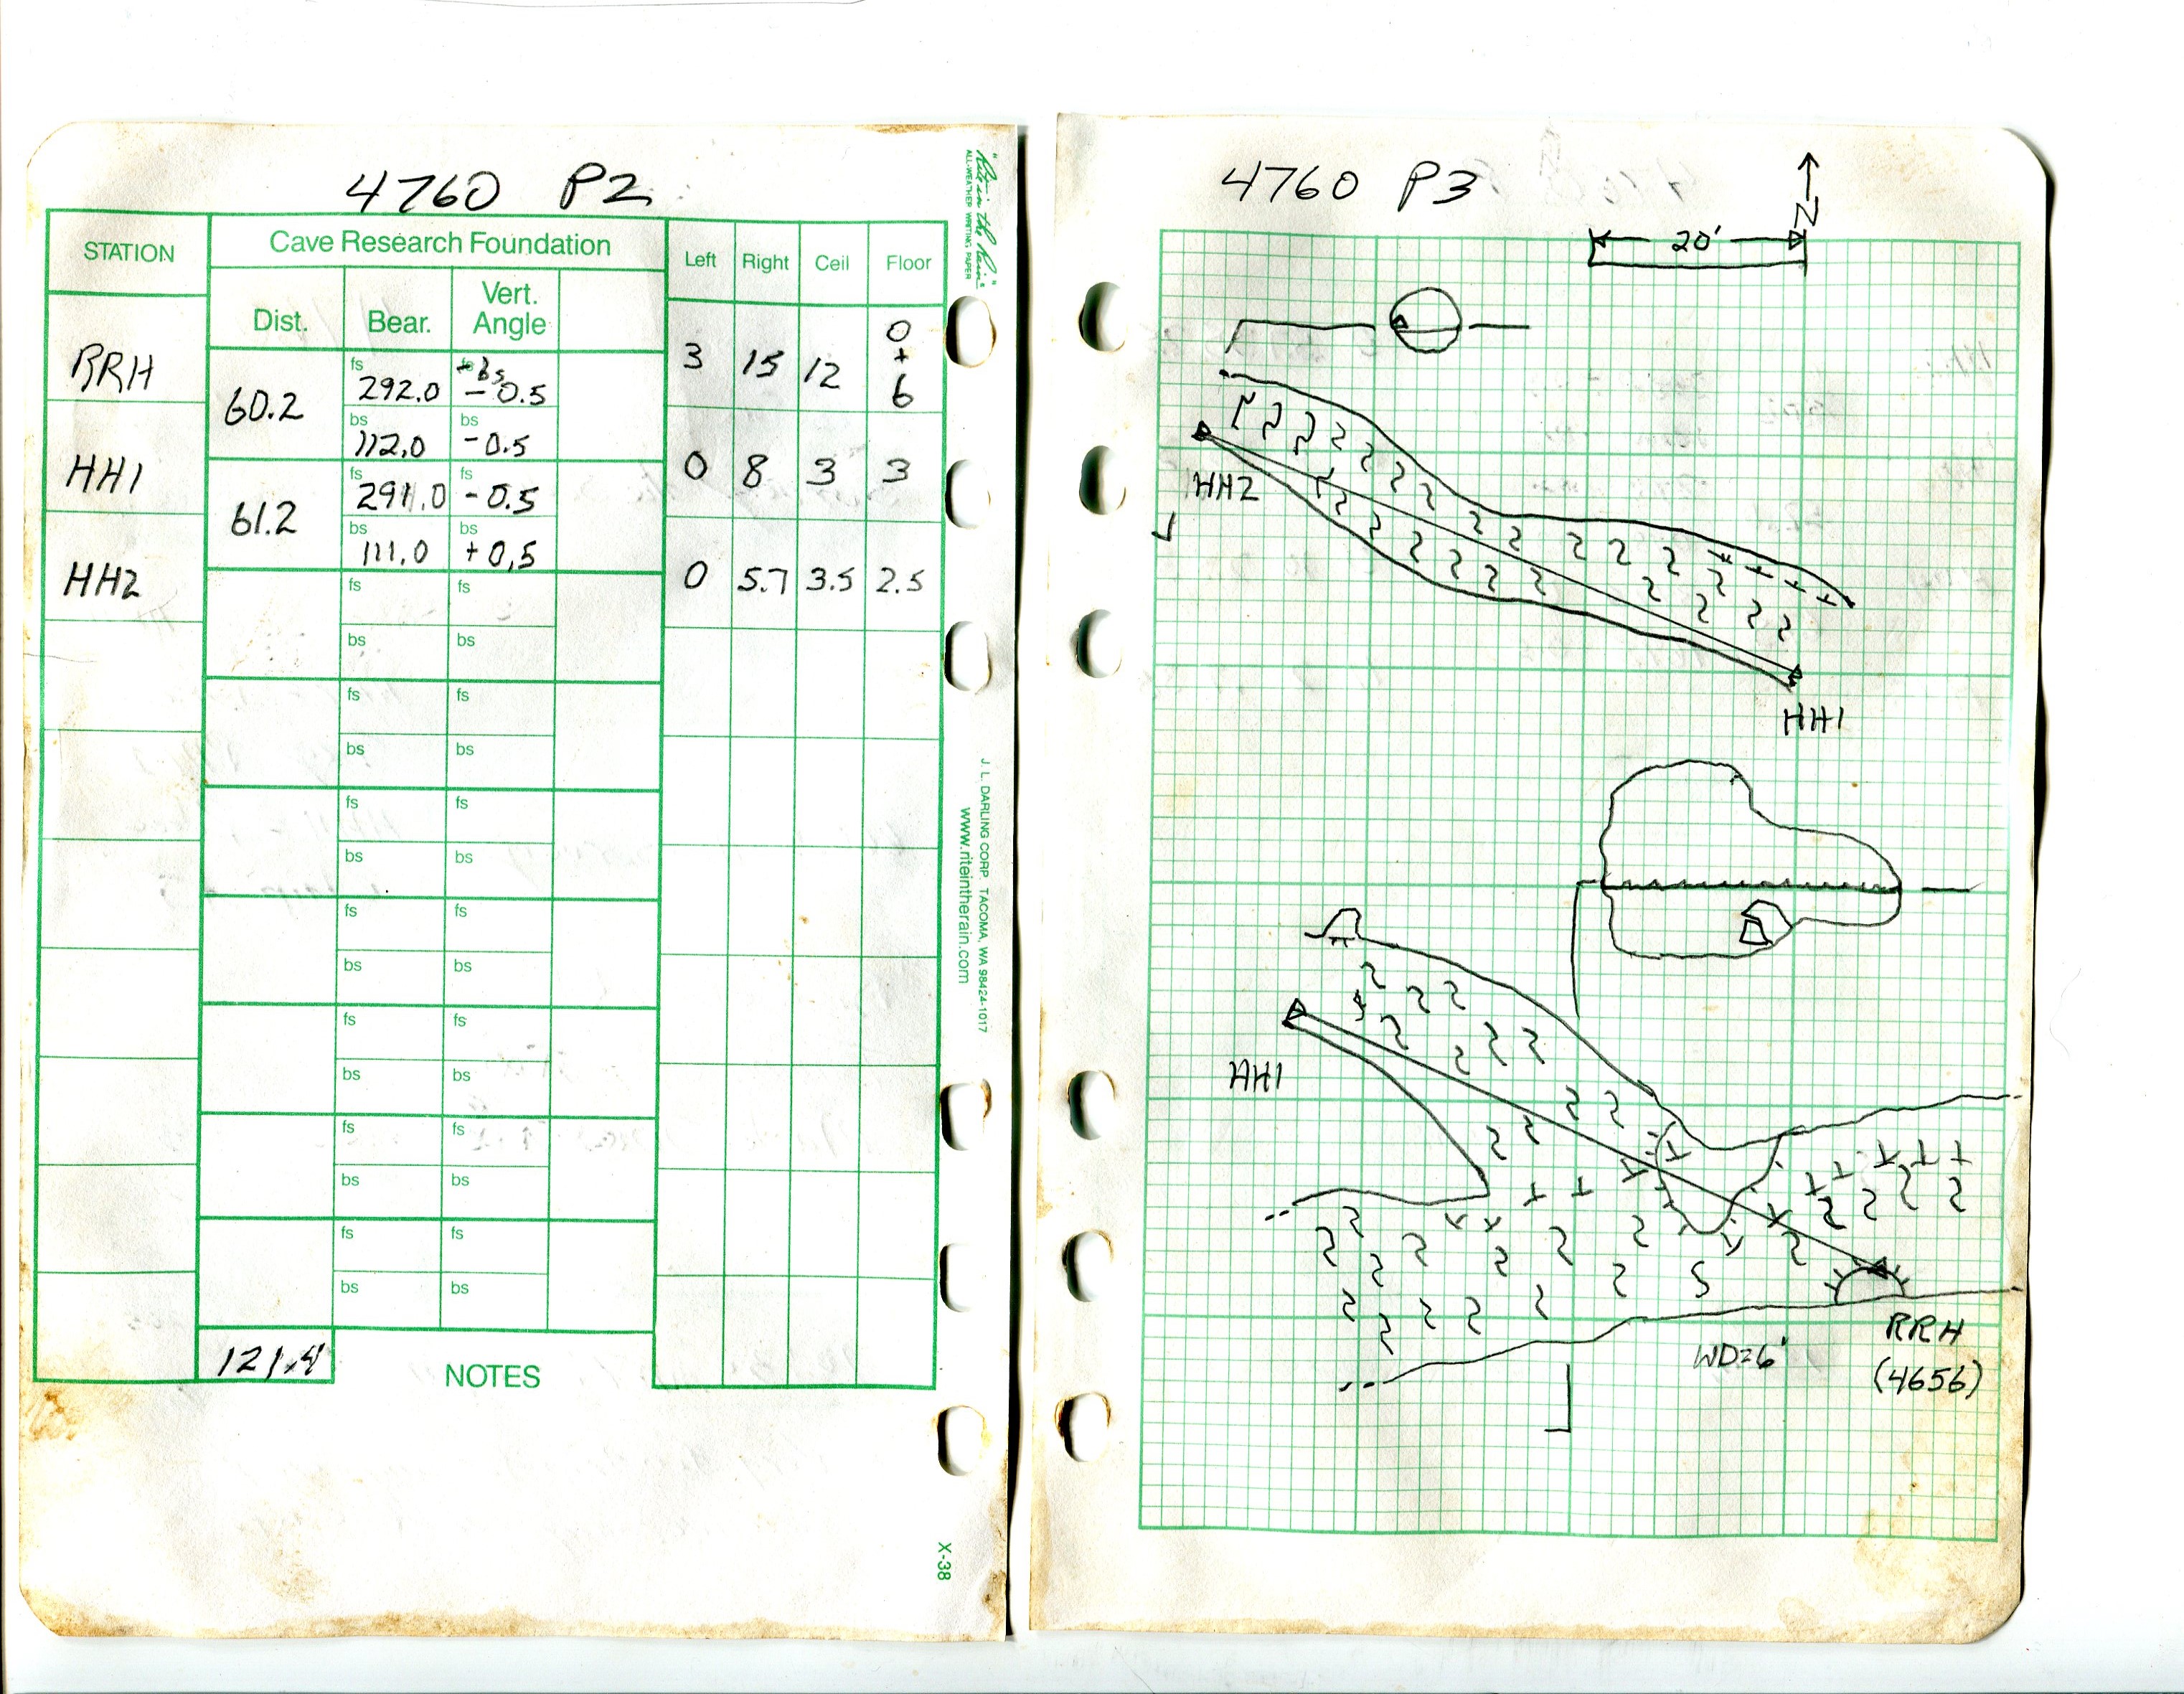 4760 P2
STATION
Cave Research Foundation
Left Right Ceil Floor
Dist. Bear. Vert. Angle
RRH
60.2
fs 292.0
bs
- 0.5
bs 112.0
bs -0.5
3 15 12 0 + 6
HH1
61.2
fs 291.0
fs - 0.5
bs 111.0
bs + 0.5
0 8 3 3
HH2
0 5.7 3.5 2.5
fs fs
bs bs
fs fs
bs bs
fs fs
bs bs
fs fs
bs bs
fs fs
bs bs
fs fs
bs bs
fs fs
bs bs
121.4
NOTES
"Rite in the Rain"
ALL-WEATHER WRITING PAPER
J. L. DARLING CORP. TACOMA, WA 98424-1017
www.riteintherain.com
X-38
4760 P3
N
20'
HH2
HH1
HH1
WD=6'
RRH
(4656)